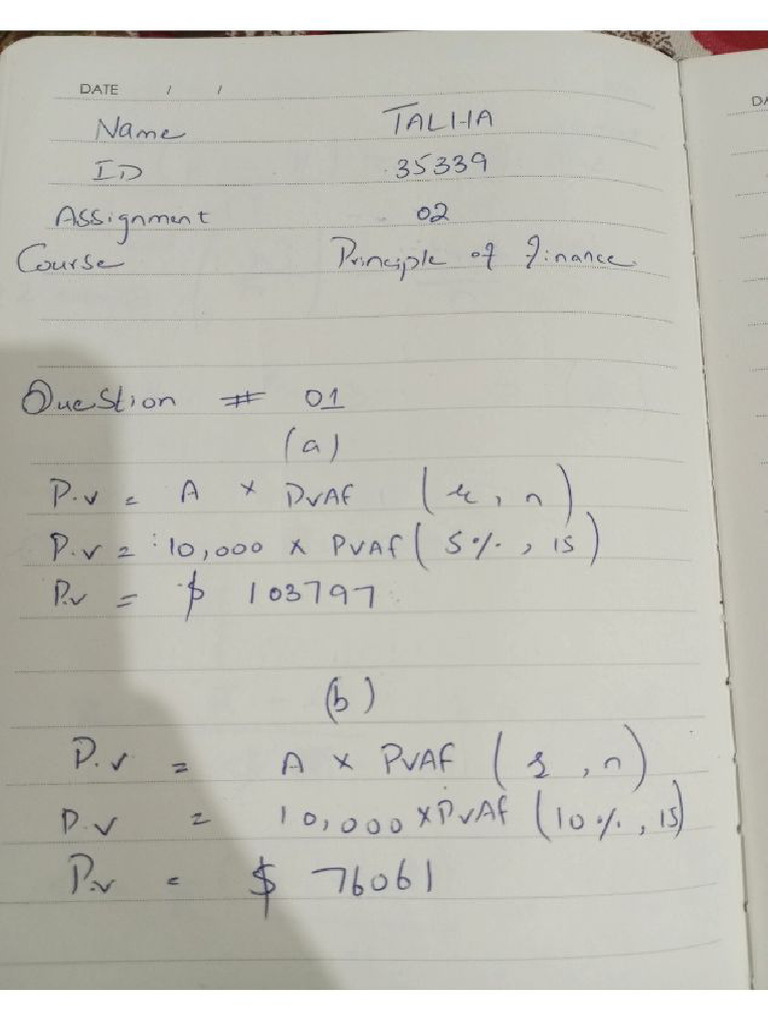 DATE / /
DA
Name TALHA
ID 35339
Assignment 02
Course Principle of finance
Question # 01
(a)
P.v = A × PVAf (r, n)
P.v = 10,000 × PVAf (5%, 15)
P.v = $ 103797
(b)
P.v = A × PVAf (r, n)
P.v = 10,000 × PVAf (10%, 15)
P.v = $ 76061